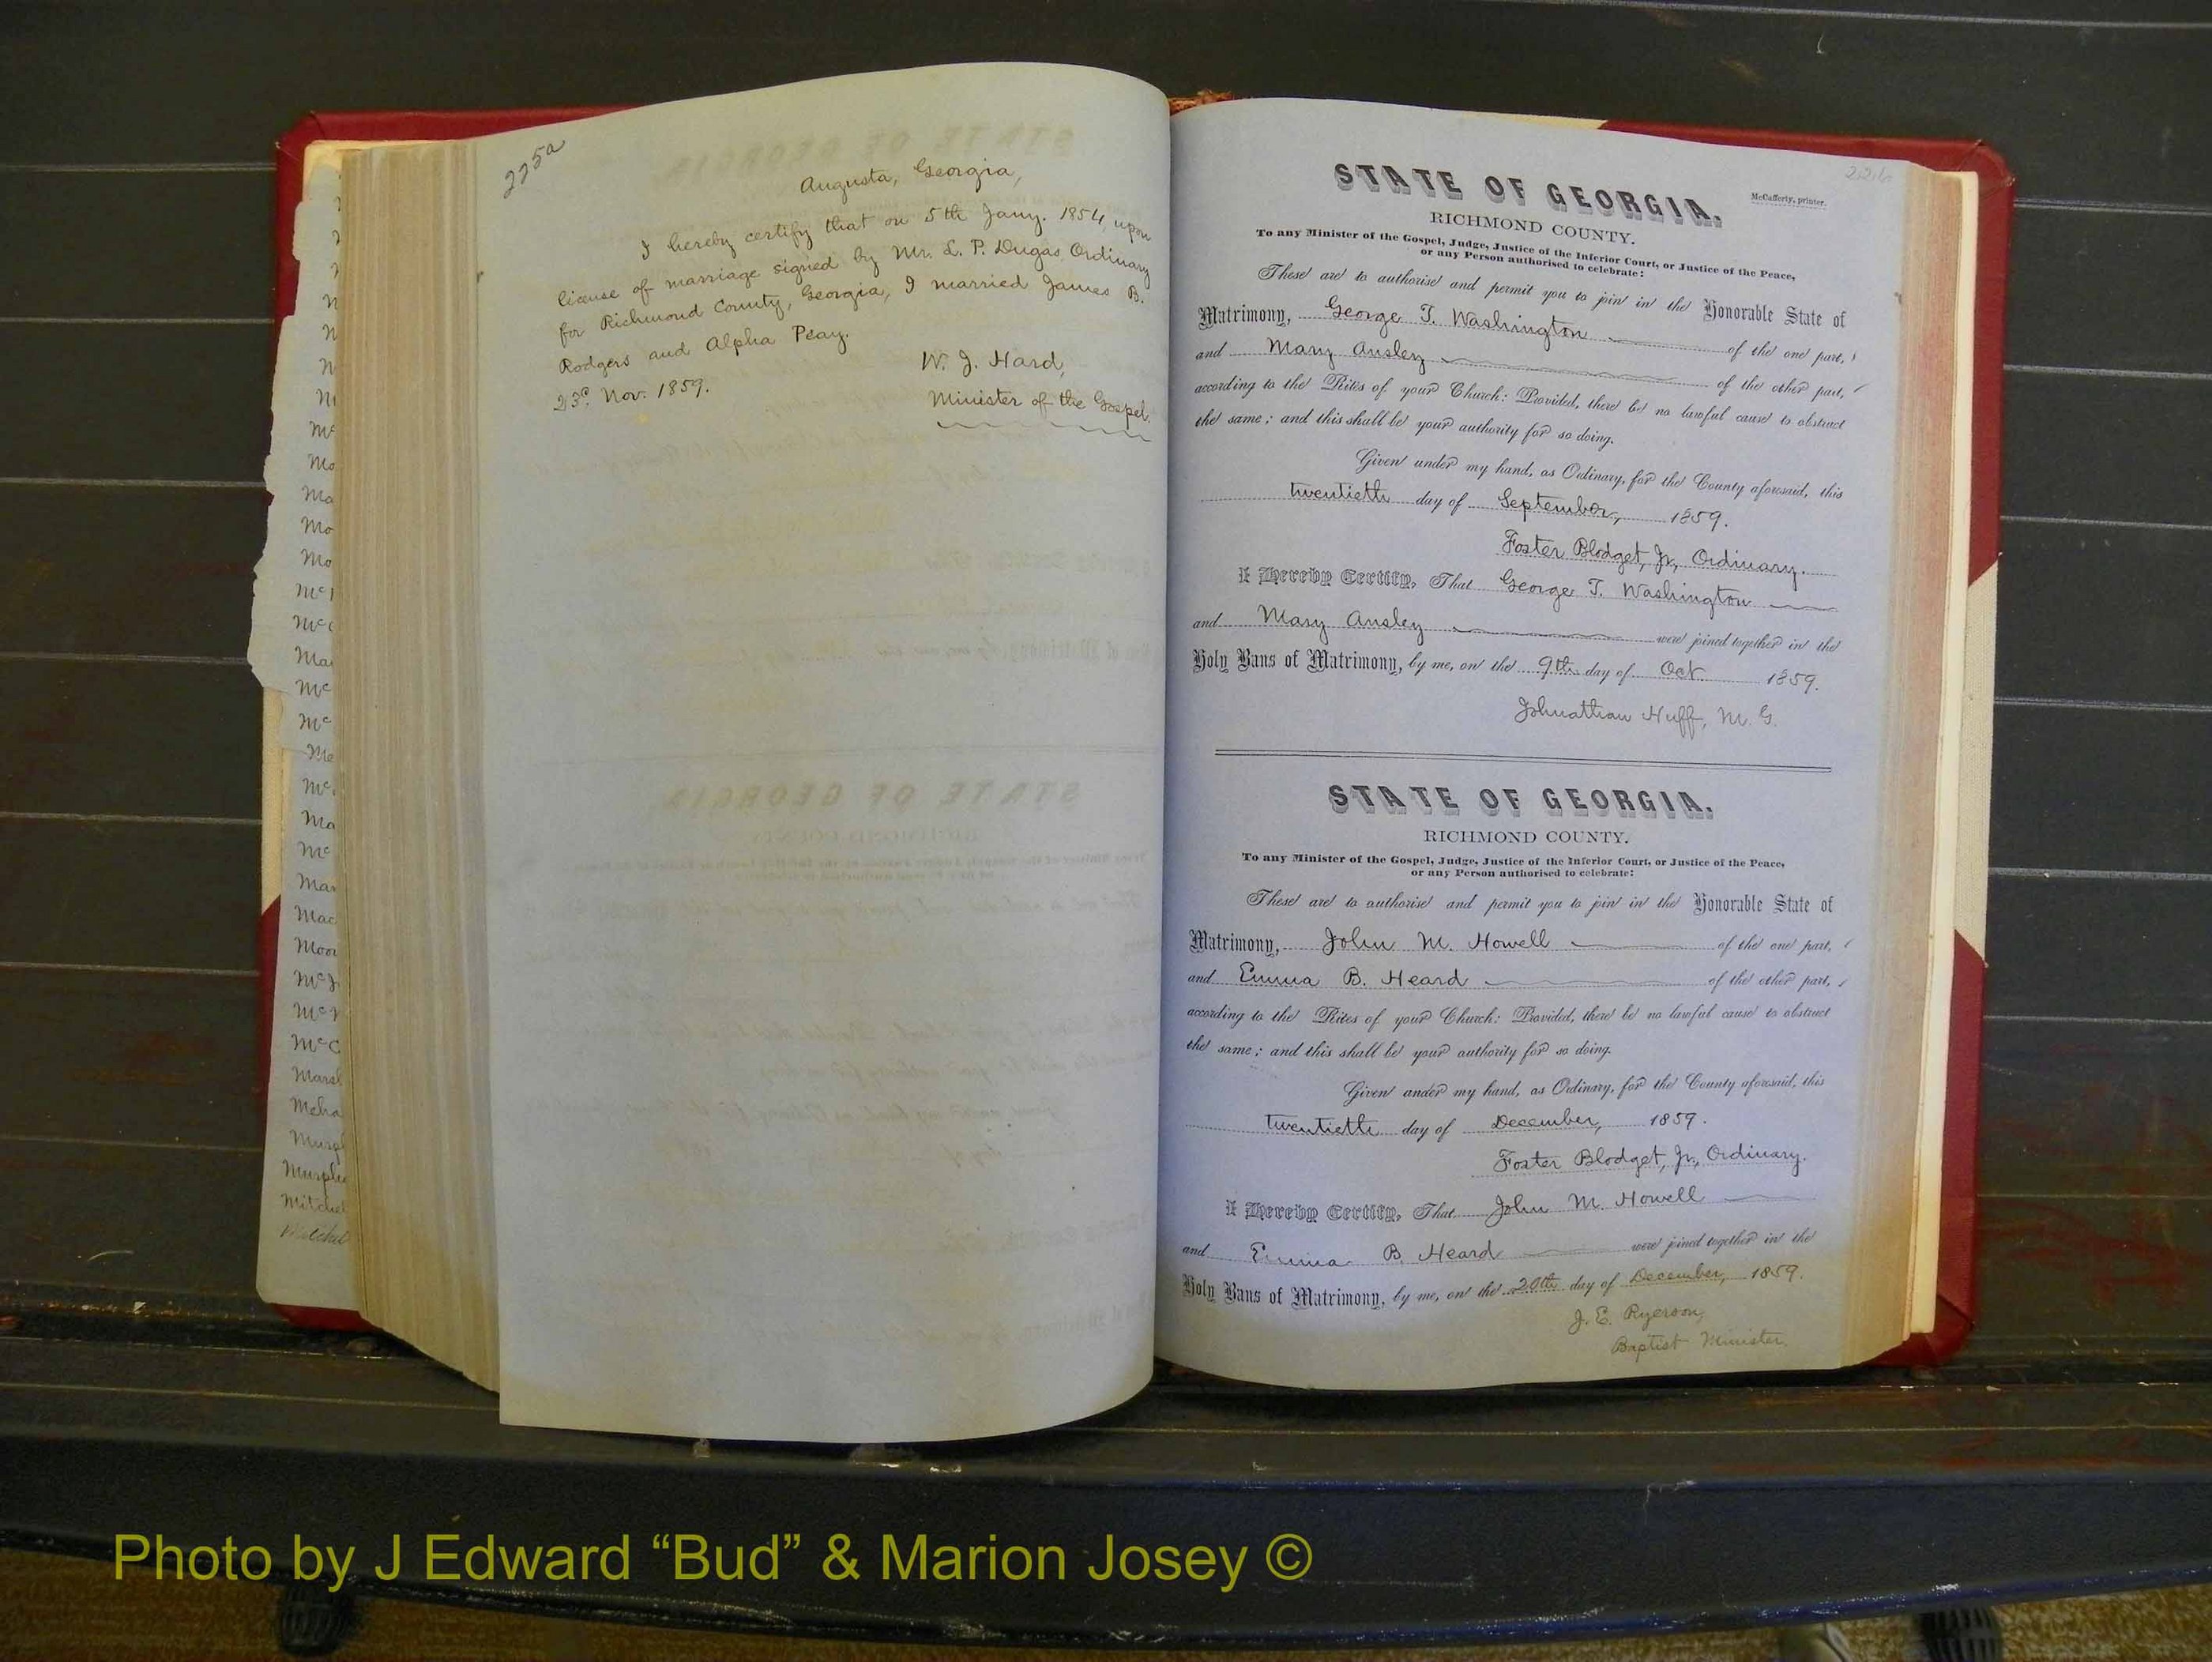 225a
Augusta, Georgia,
I hereby certify that on 5th Jany. 1854, upon
license of marriage signed by Mr. L. P. Dugas Ordinary
for Richmond County, Georgia, I married James B.
Rodgers and Alpha Peay.
23d. Nov. 1859.
W. J. Hard,
Minister of the Gospel.
226
McCafferty, printer.
STATE OF GEORGIA.
RICHMOND COUNTY.
To any Minister of the Gospel, Judge, Justice of the Inferior Court, or Justice of the Peace,
or any Person authorised to celebrate:
These are to authorise and permit you to join in the Honorable State of
Matrimony, George T. Washington of the one part,
and Mary Ansley of the other part,
according to the Rites of your Church: Provided, there be no lawful cause to obstruct
the same; and this shall be your authority for so doing.
Given under my hand, as Ordinary, for the County aforesaid, this
twentieth day of September, 1859.
Foster Blodget, Jr., Ordinary.
I Hereby Certify, That George T. Washington
and Mary Ansley were joined together in the
Holy Bans of Matrimony, by me, on the 9th day of Oct 1859.
Johnathan Huff, M. G.
STATE OF GEORGIA.
RICHMOND COUNTY.
To any Minister of the Gospel, Judge, Justice of the Inferior Court, or Justice of the Peace,
or any Person authorised to celebrate:
These are to authorise and permit you to join in the Honorable State of
Matrimony, John M. Howell of the one part,
and Emma B. Heard of the other part,
according to the Rites of your Church: Provided, there be no lawful cause to obstruct
the same; and this shall be your authority for so doing.
Given under my hand, as Ordinary, for the County aforesaid, this
twentieth day of December, 1859.
Foster Blodget, Jr., Ordinary.
I Hereby Certify, That John M. Howell
and Emma B. Heard were joined together in the
Holy Bans of Matrimony, by me, on the 20th day of December, 1859.
J. E. Ryerson,
Baptist Minister.
Photo by J Edward “Bud” & Marion Josey ©